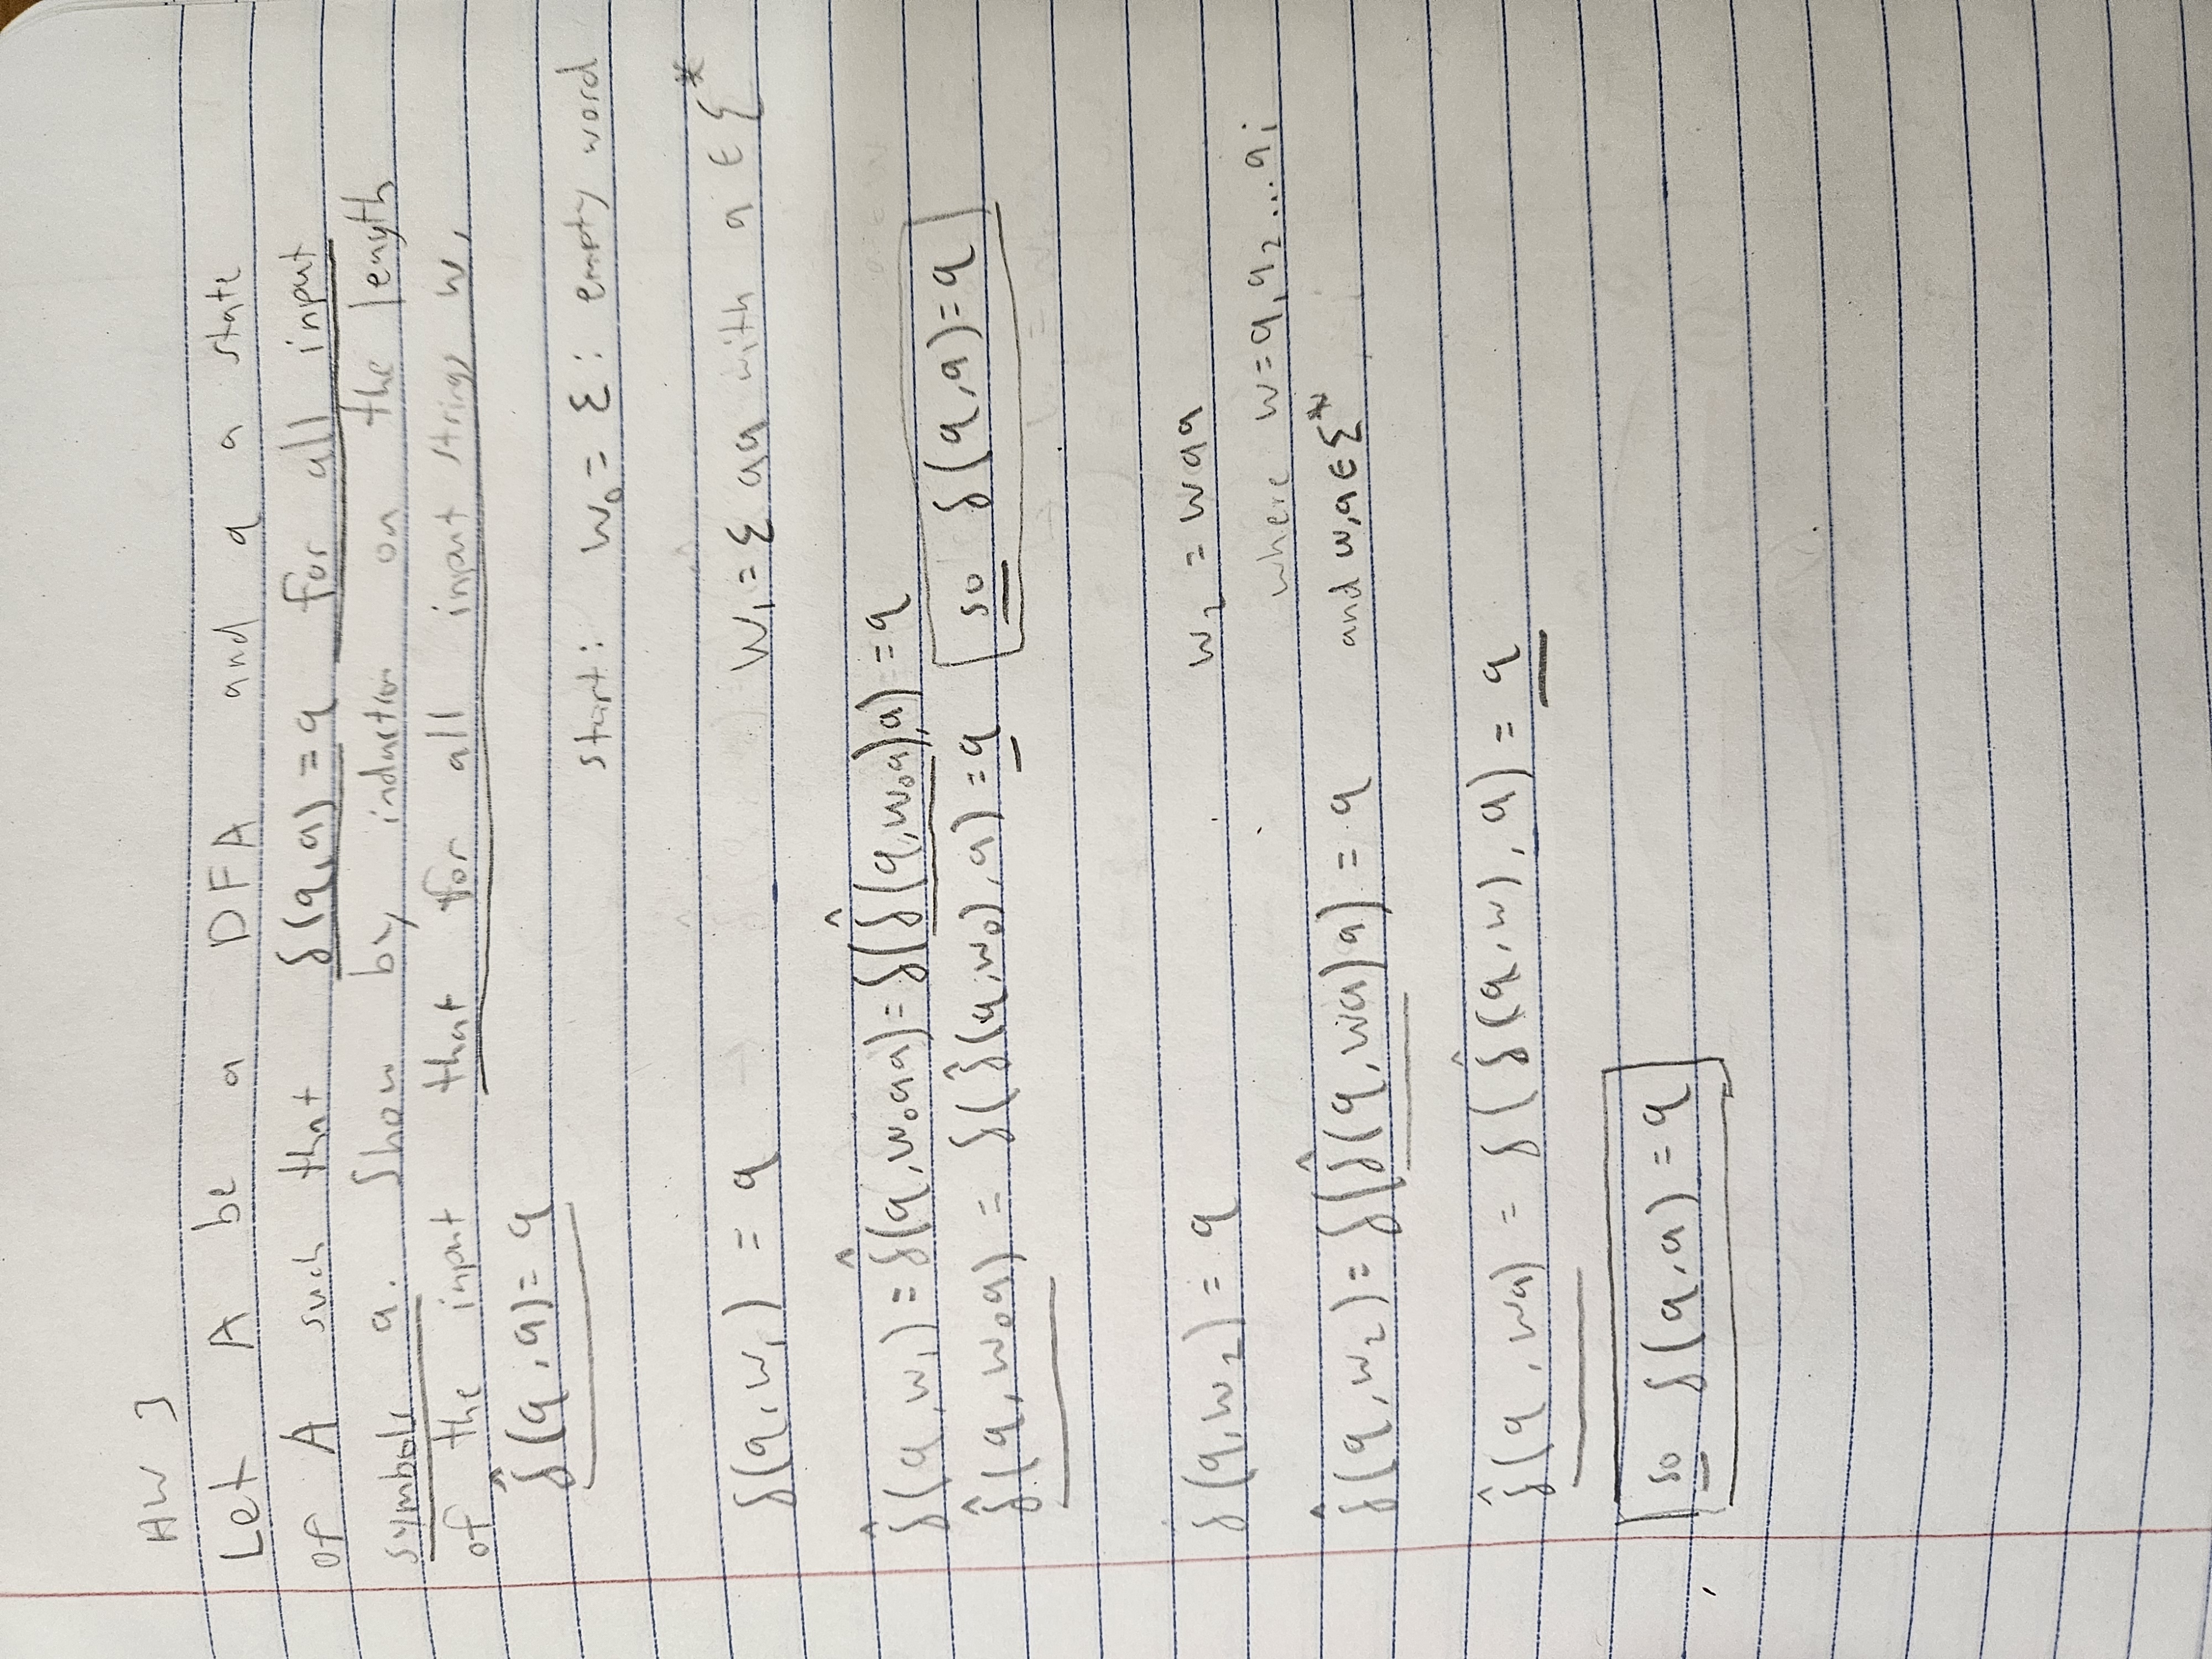 HW 3
Let A be a DFA and q a state
of A such that δ(q,a) = q for all input
symbols a. Show by induction on the length
of the input that for all input strings w,
δ̂(q,a) = q
start: w₀ = ε: empty word
δ(q,w₁) = q w₁ = ε aa with a ∈ Σ*
δ̂(q,w₁) = δ̂(q,w₀aa) = δ(δ̂(q,w₀a),a) = q
δ̂(q,w₀a) = δ(δ̂(q,w₀),a) = q so δ(q,a) = q
δ(q,w₂) = q w₂ = waa
where w = a₁a₂...aᵢ
δ̂(q,w₂) = δ(δ̂(q,wa)a) = q and w,a ∈ Σ*
δ̂(q,wa) = δ(δ̂(q,w),a) = q
so δ(q,a) = q